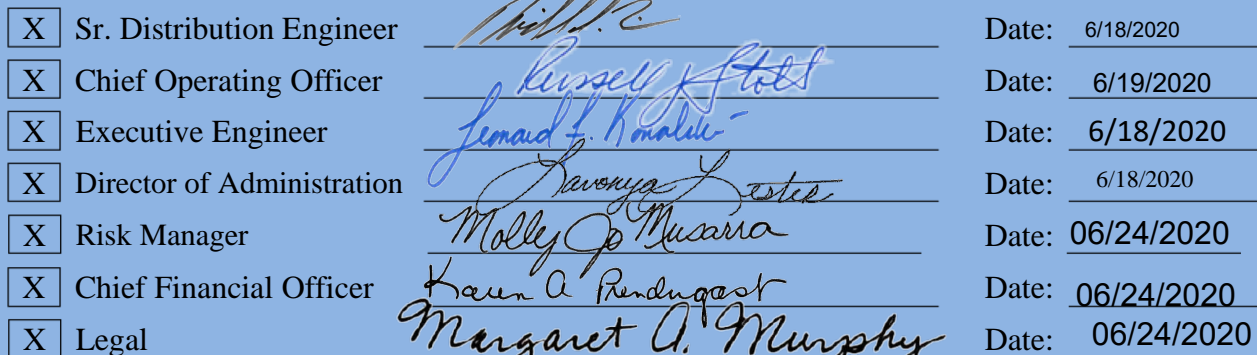 X Sr. Distribution Engineer Date: 6/18/2020
X Chief Operating Officer Russell Stolt Date: 6/19/2020
X Executive Engineer Leonard F. Date: 6/18/2020
X Director of Administration Lavonya Lester Date: 6/18/2020
X Risk Manager Molly Jo Musarra Date: 06/24/2020
X Chief Financial Officer Karen A Prendergast Date: 06/24/2020
X Legal Margaret A. Murphy Date: 06/24/2020